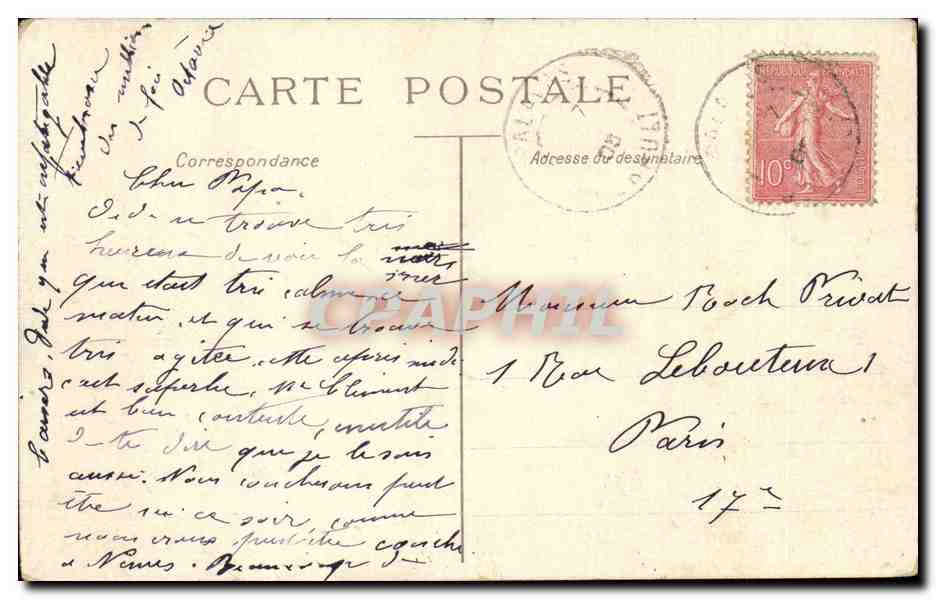 CARTE POSTALE
Correspondance
Adresse du destinataire
REPUBLIQUE FRANÇAISE
10c
Cher Papa,
Dédé se trouve très
heureux de voir la
mer
qui était très calme ce
matin, et qui se trouve
très agitée cette après midi
c'est superbe, Me Climent
est bien contente, inutile
de te dire que je le suis
aussi. Nous coucherons peut
être ici ce soir, comme
nous irons peut être coucher
à Nimes. Beaucoup de
baisers, Dédé qui est infatigable
des milliers
de foi
Octavie
Monsieur Roch Privat
1 Rue Lebouteux 1
Paris
17e
CPAPHIL